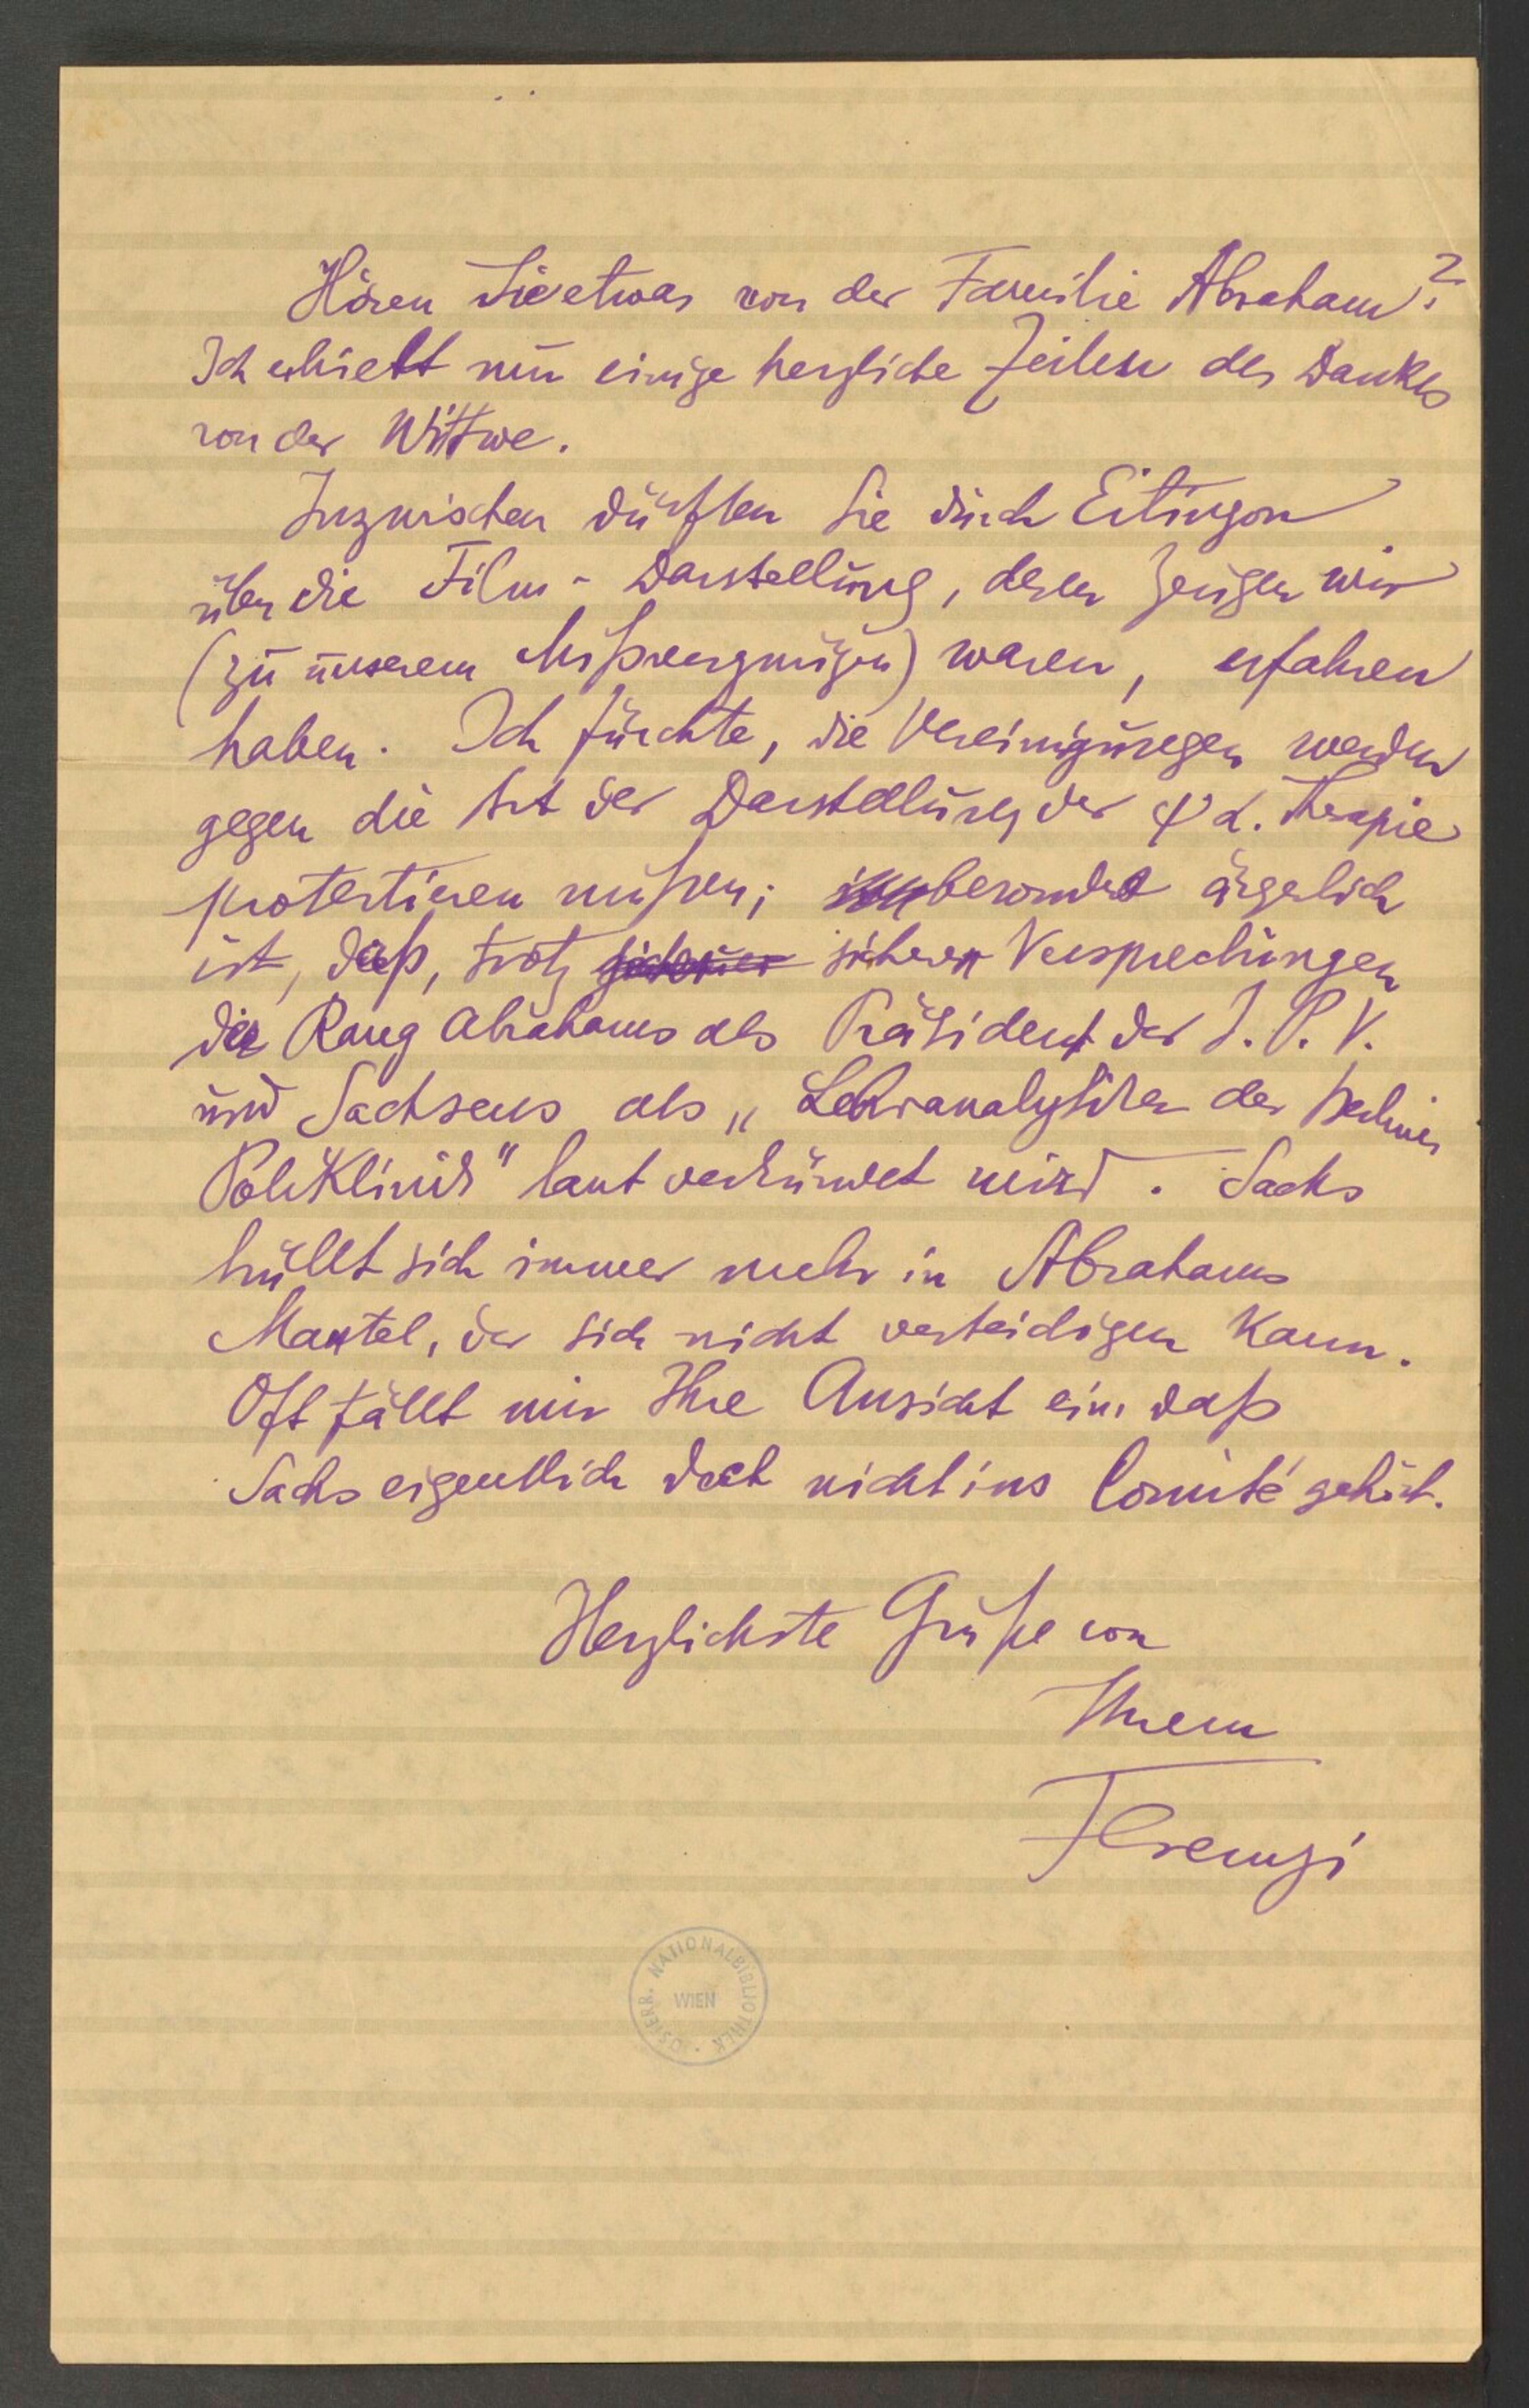 Hören Sie etwas von der Familie Abraham?
Ich erhielt nur einige herzliche Zeilen des Dankes
von der Wittwe.
Inzwischen dürften Sie durch Eitingon
über die Film-Darstellung, deren Zeugen wir
(zu unserem Mißvergnügen) waren, erfahren
haben. Ich fürchte, die Vereinigungen werden
gegen die Art der Darstellung der ψα. Therapie
protestieren müßen; besonders ärgerlich
ist, daß, trotz sicheren Versprechungen
der Rang Abrahams als Präsident der I. P. V.
und Sachsens als „Lehranalytiker der Berliner
Poliklinik" laut verkündet wird. Sachs
hüllt sich immer mehr in Abrahams
Mantel, der sich nicht verteidigen kann.
Oft fällt mir Ihre Ansicht ein, daß
Sachs eigentlich doch nicht ins Comité gehört.
Herzlichste Grüße von
Ihrem
Ferenczi
ÖSTERR. NATIONALBIBLIOTHEK
WIEN